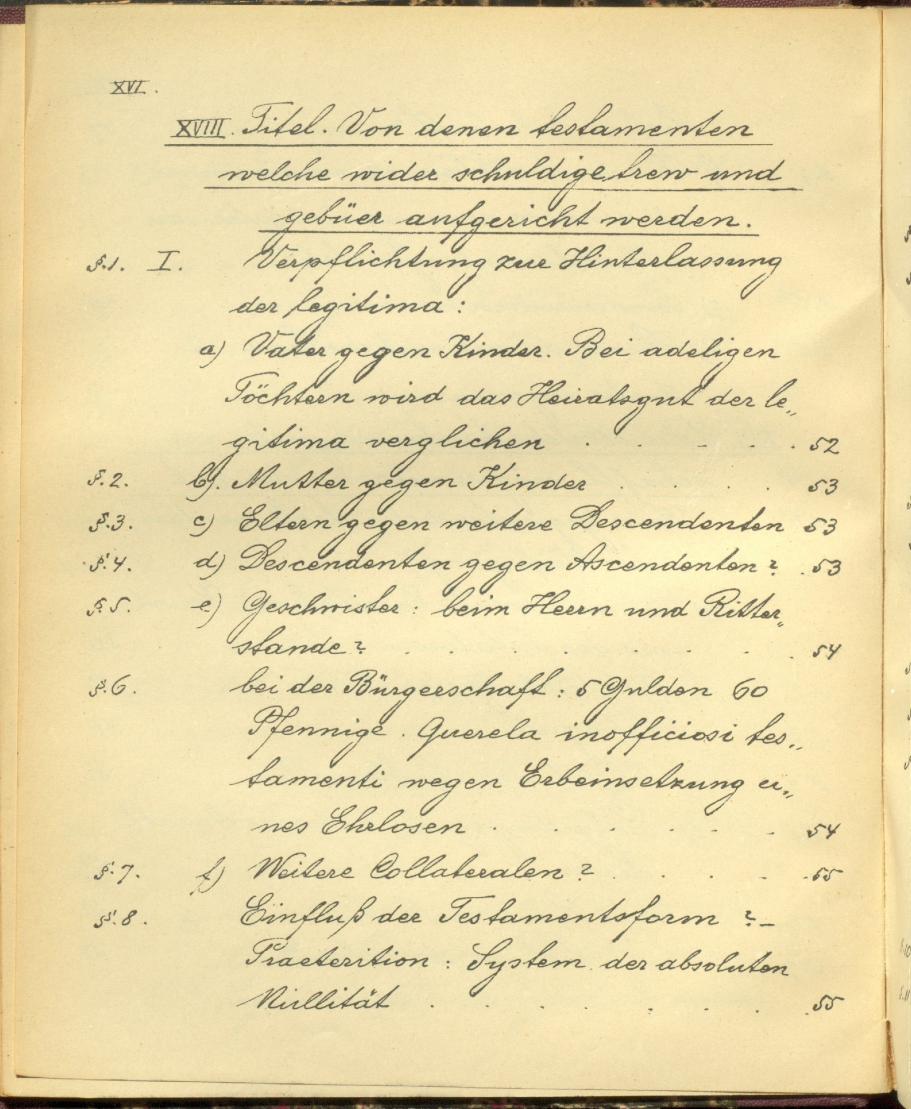 XVI.
XVIII. Titel. Von denen testamenten
welche wider schuldige trew und
gebüer aufgericht werden.
§.1. I. Verpflichtung zur Hinterlassung
der legitima:
a) Vater gegen Kinder. Bei adeligen
Töchtern wird das Heiratsgut der le„
gitima verglichen . . . . . 52
§.2. b). Mutter gegen Kinder . . . . 53
§.3. c) Eltern gegen weitere Descendenten 53
§.4. d) Descendenten gegen Ascendenten? . 53
§.5. e) Geschwister: beim Herrn und Ritter„
stande? . . . . . . . . 54
§.6. bei der Bürgerschaft: 5 Gulden 60
Pfennige. Querela inofficiosi tes„
tamenti wegen Erbeinsetzung ei„
nes Ehrlosen . . . . . . 54
§.7. f) Weitere Collateralen? . . . . . 55
§.8. Einfluß der Testamentsform? –
Praeterition: System der absoluten
Nullität . . . . . . . 55